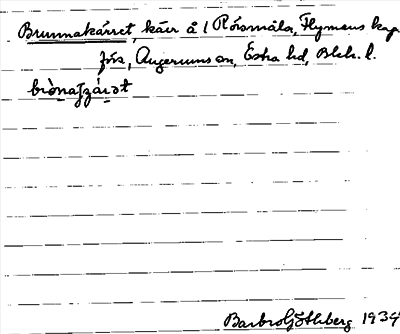 Brunnakärret, kärr å 1 Rörsmåla, Flymens kap
förs, Augerums sn, Östra hd, Blek. l.
Barbro Göthberg 1934